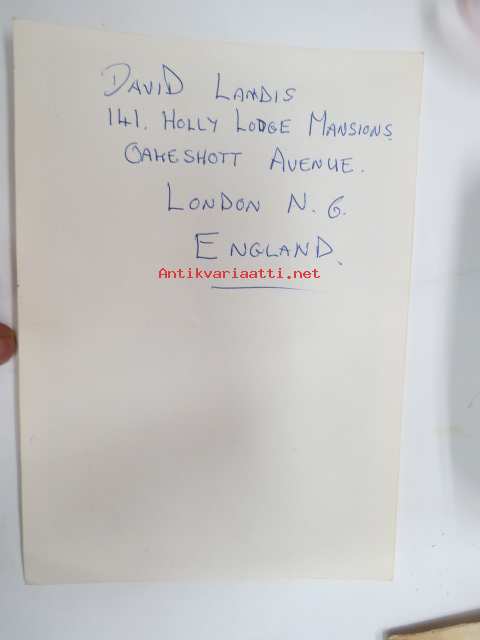 DAVID LANDIS
141. HOLLY LODGE MANSIONS
OAKESHOTT AVENUE.
LONDON N. 6.
ENGLAND.
Antikvariaatti.net